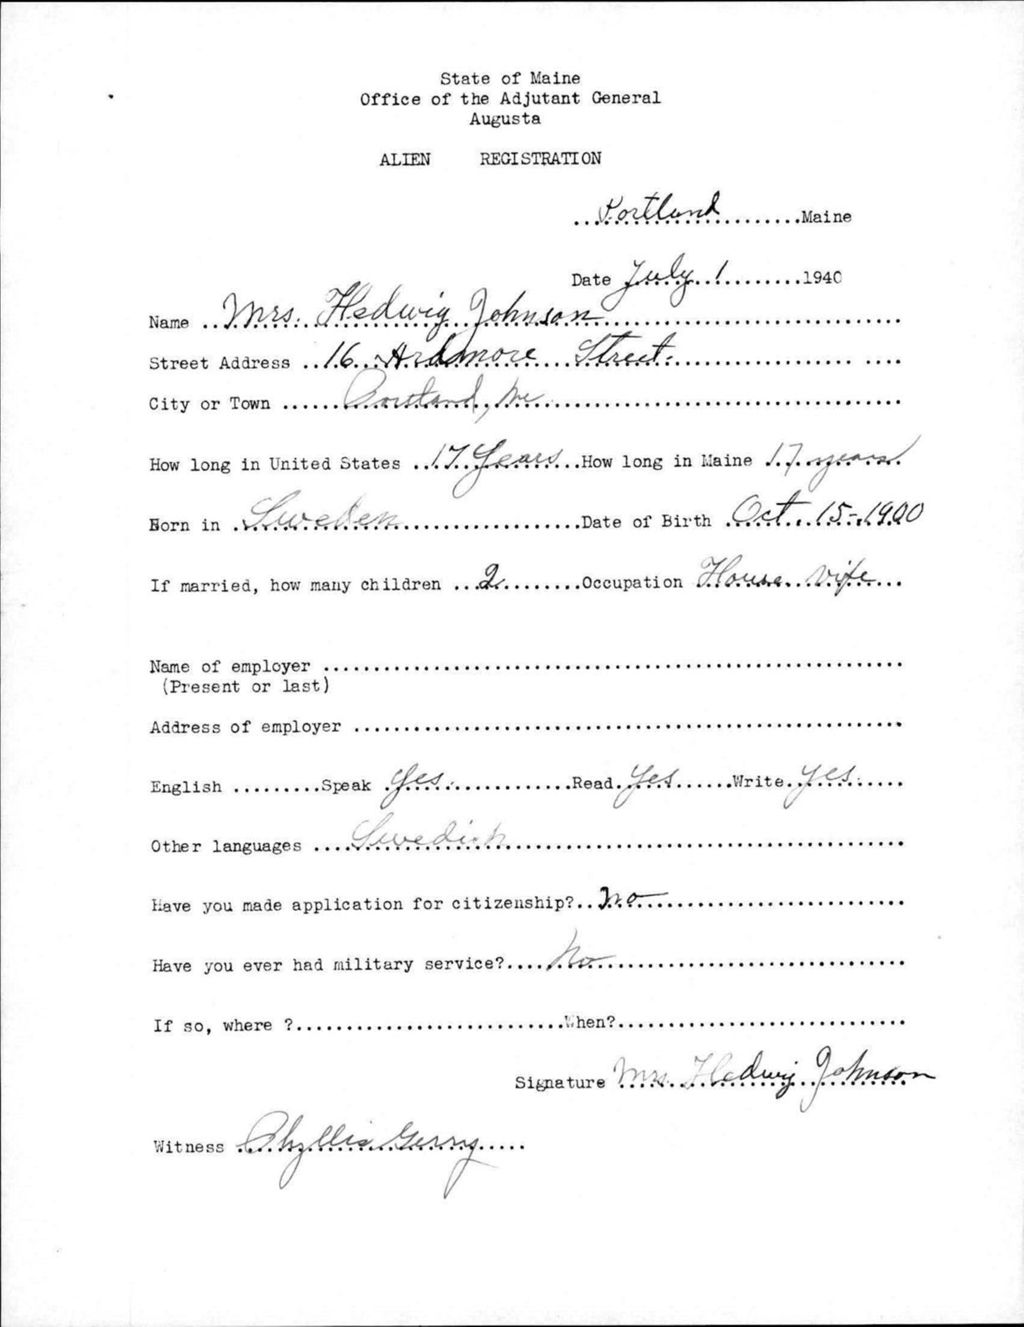 State of Maine
Office of the Adjutant General
Augusta
ALIEN REGISTRATION
Portland Maine
Date July 1 1940
Name Mrs. Hedwig Johnson
Street Address 16 Ardmore Street.
City or Town Portland, Me
How long in United States 17 Years How long in Maine 17 years
Born in Sweden Date of Birth Oct. 15-1900
If married, how many children 2 Occupation House wife
Name of employer
(Present or last)
Address of employer
English Speak Yes Read Yes Write Yes
Other languages Swedish
Have you made application for citizenship? No
Have you ever had military service? No
If so, where ? When?
Signature Mrs. Hedwig Johnson
Witness Phyllis Gerry